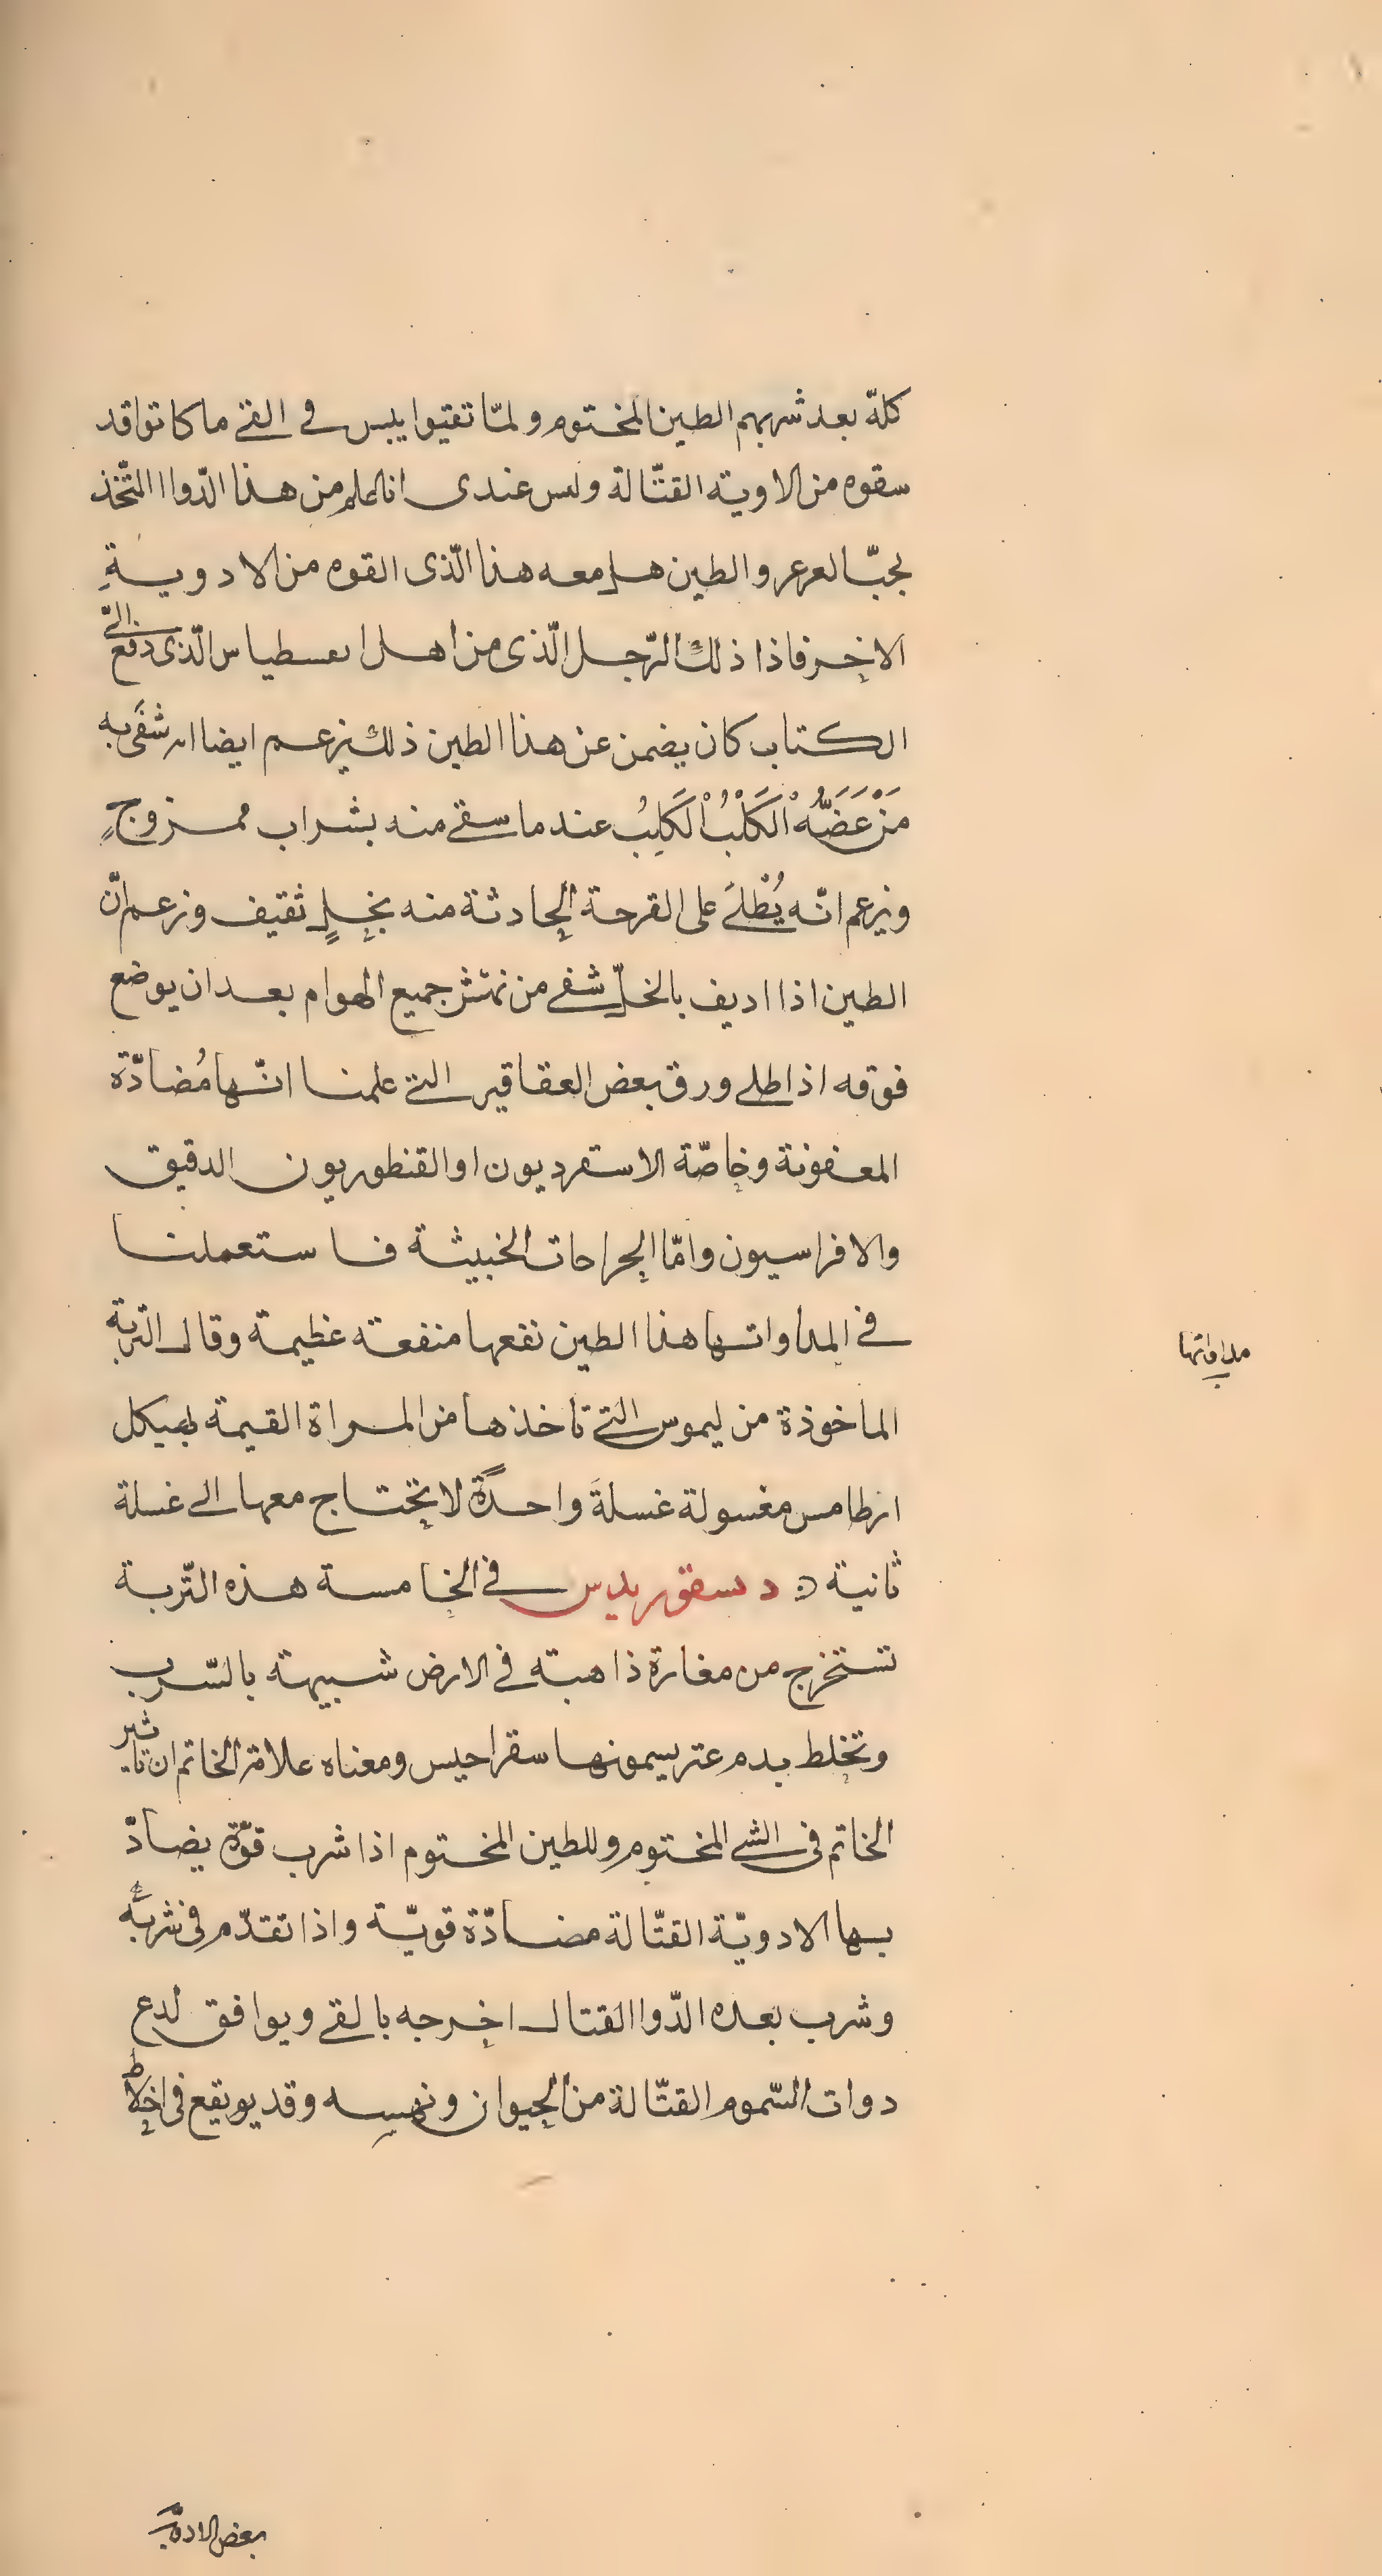 كلّه بعد شربهم الطين المختوم ولمّا تقيوا يبس في القئ ما كانوا قد
سقوه من الاوية القتّالة وليس عندى انا علم من هذا الدّوا المتّخذ
بحبّ العرعر والطين هل معه هذا الّذى القوه من الادويةِ
الاخر فاذا ذلك الرّجل الّذى من اهل الّذى دفع الىّ
الكتاب كان يضمن عن هذا الطين ذلك يزعم ايضا انه شفى به
مَنْ عَضَّهُ الْكَلْبُ الْكَلِبُ عند ما سقى منه بشراب ممزوجٍ
ويزعم انّه يُطْلَى على القرحة الحادثة منه بخلٍ ثقيف وزعم انّ
الطين اذا اديف بالخلّ شفى من نهش جميع الهوام بعد ان يوضع
فوقه اذا طلى ورق بعض العقاقير التى علمنا انّها مُضادّة
المعفونة وخاصّة الاسقرديون او القنطوريون الدقيق
والافراسيون وامّا الجراحات الخبيثة فاستعملنا
في المداواتها هذا الطين نفعها منفعته عظيمة وقال التربة
مداواتها
الماخوذة من ليموس التى تاخذها من المراة القيمة بهيكل
ارطامس مغسولة غسلةَ واحدةً لا يحتاج معها الى غسلة
ثانية د دسقوريدس في الخامسة هذه التّربة
تستخرج من مغارة ذاهبته في الارض شبيهته بالسّرب
وتخلط بدم عتر يسمونها سقراحيس ومعناه علامة الخاتم ان تاثير
الخاتم في الشى المختوم وللطين المختوم اذا شرب قوّة يضادّ
بها الادويّة القتّالة مضادّة قويّة واذا تقدّم في شربه
وشرب بعده الدّوا القتال اخرجه بالقى ويوافق لدع
دوات السّموم القتّالة من الحيوان ونهسه وقد يويقع في اخلاط
بعض الادوية